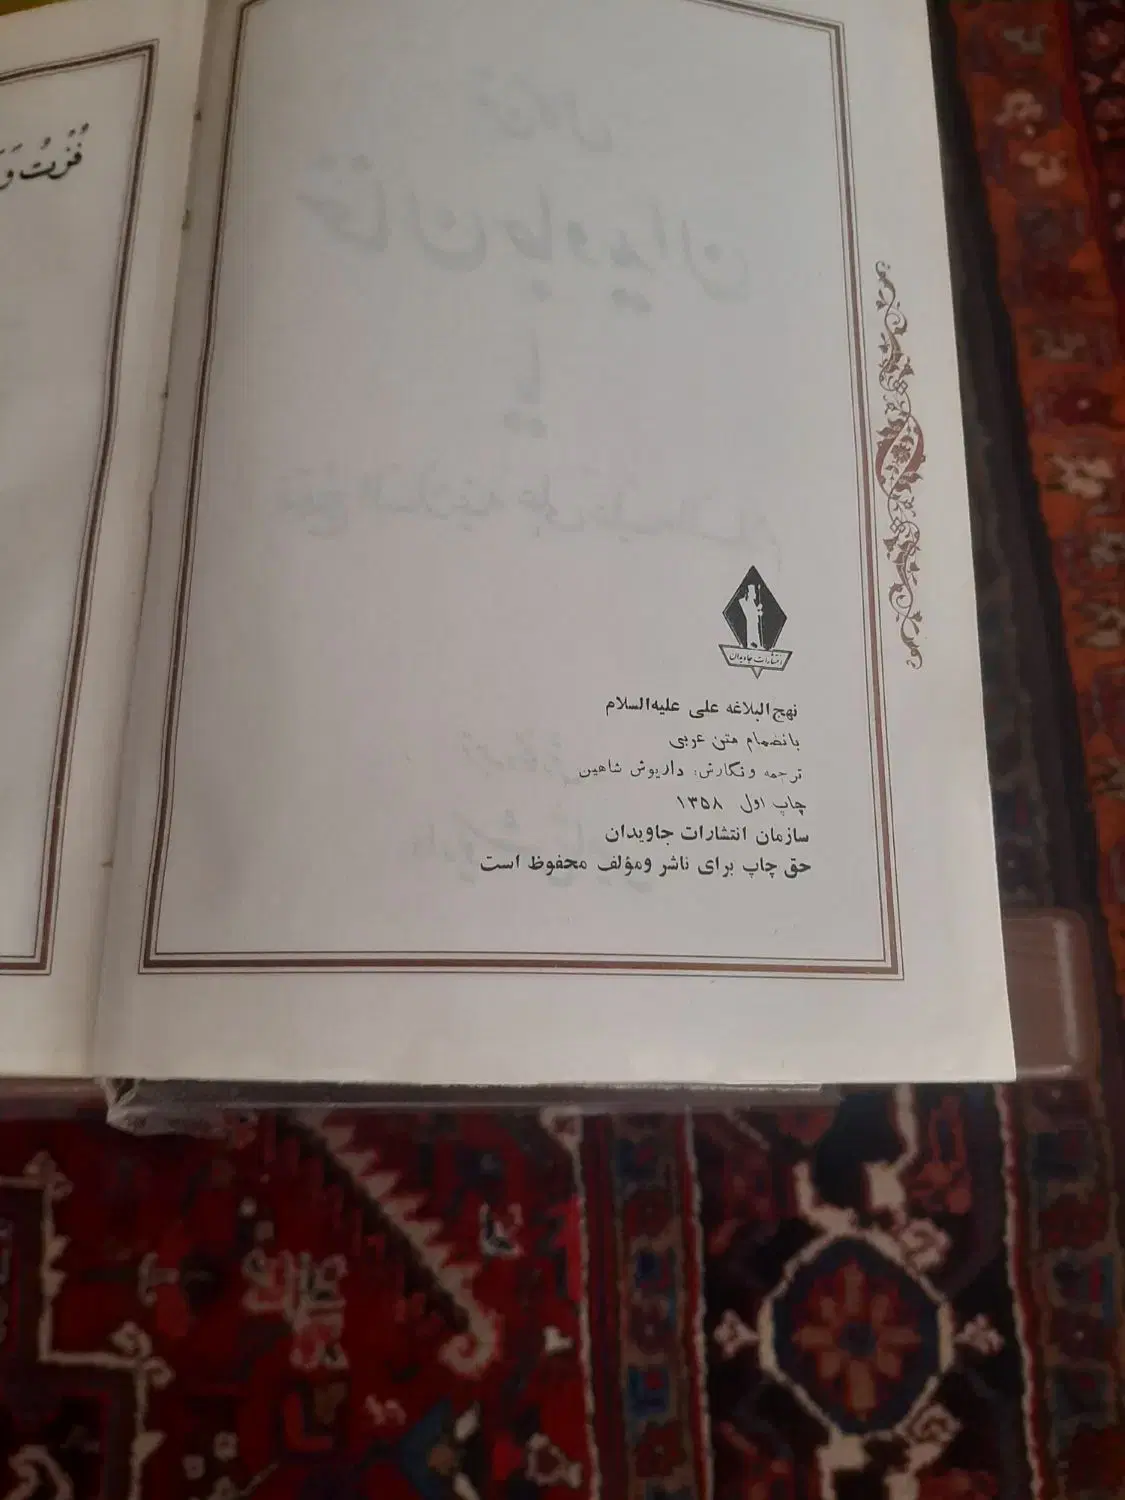 فُزْتُ وَ
انتشارات جاویدان
نهج‌البلاغه علی علیه‌السلام
بانضمام متن عربی
ترجمه ونگارش: داریوش شاهین
چاپ اول ۱۳۵۸
سازمان انتشارات جاویدان
حق چاپ برای ناشر ومؤلف محفوظ است